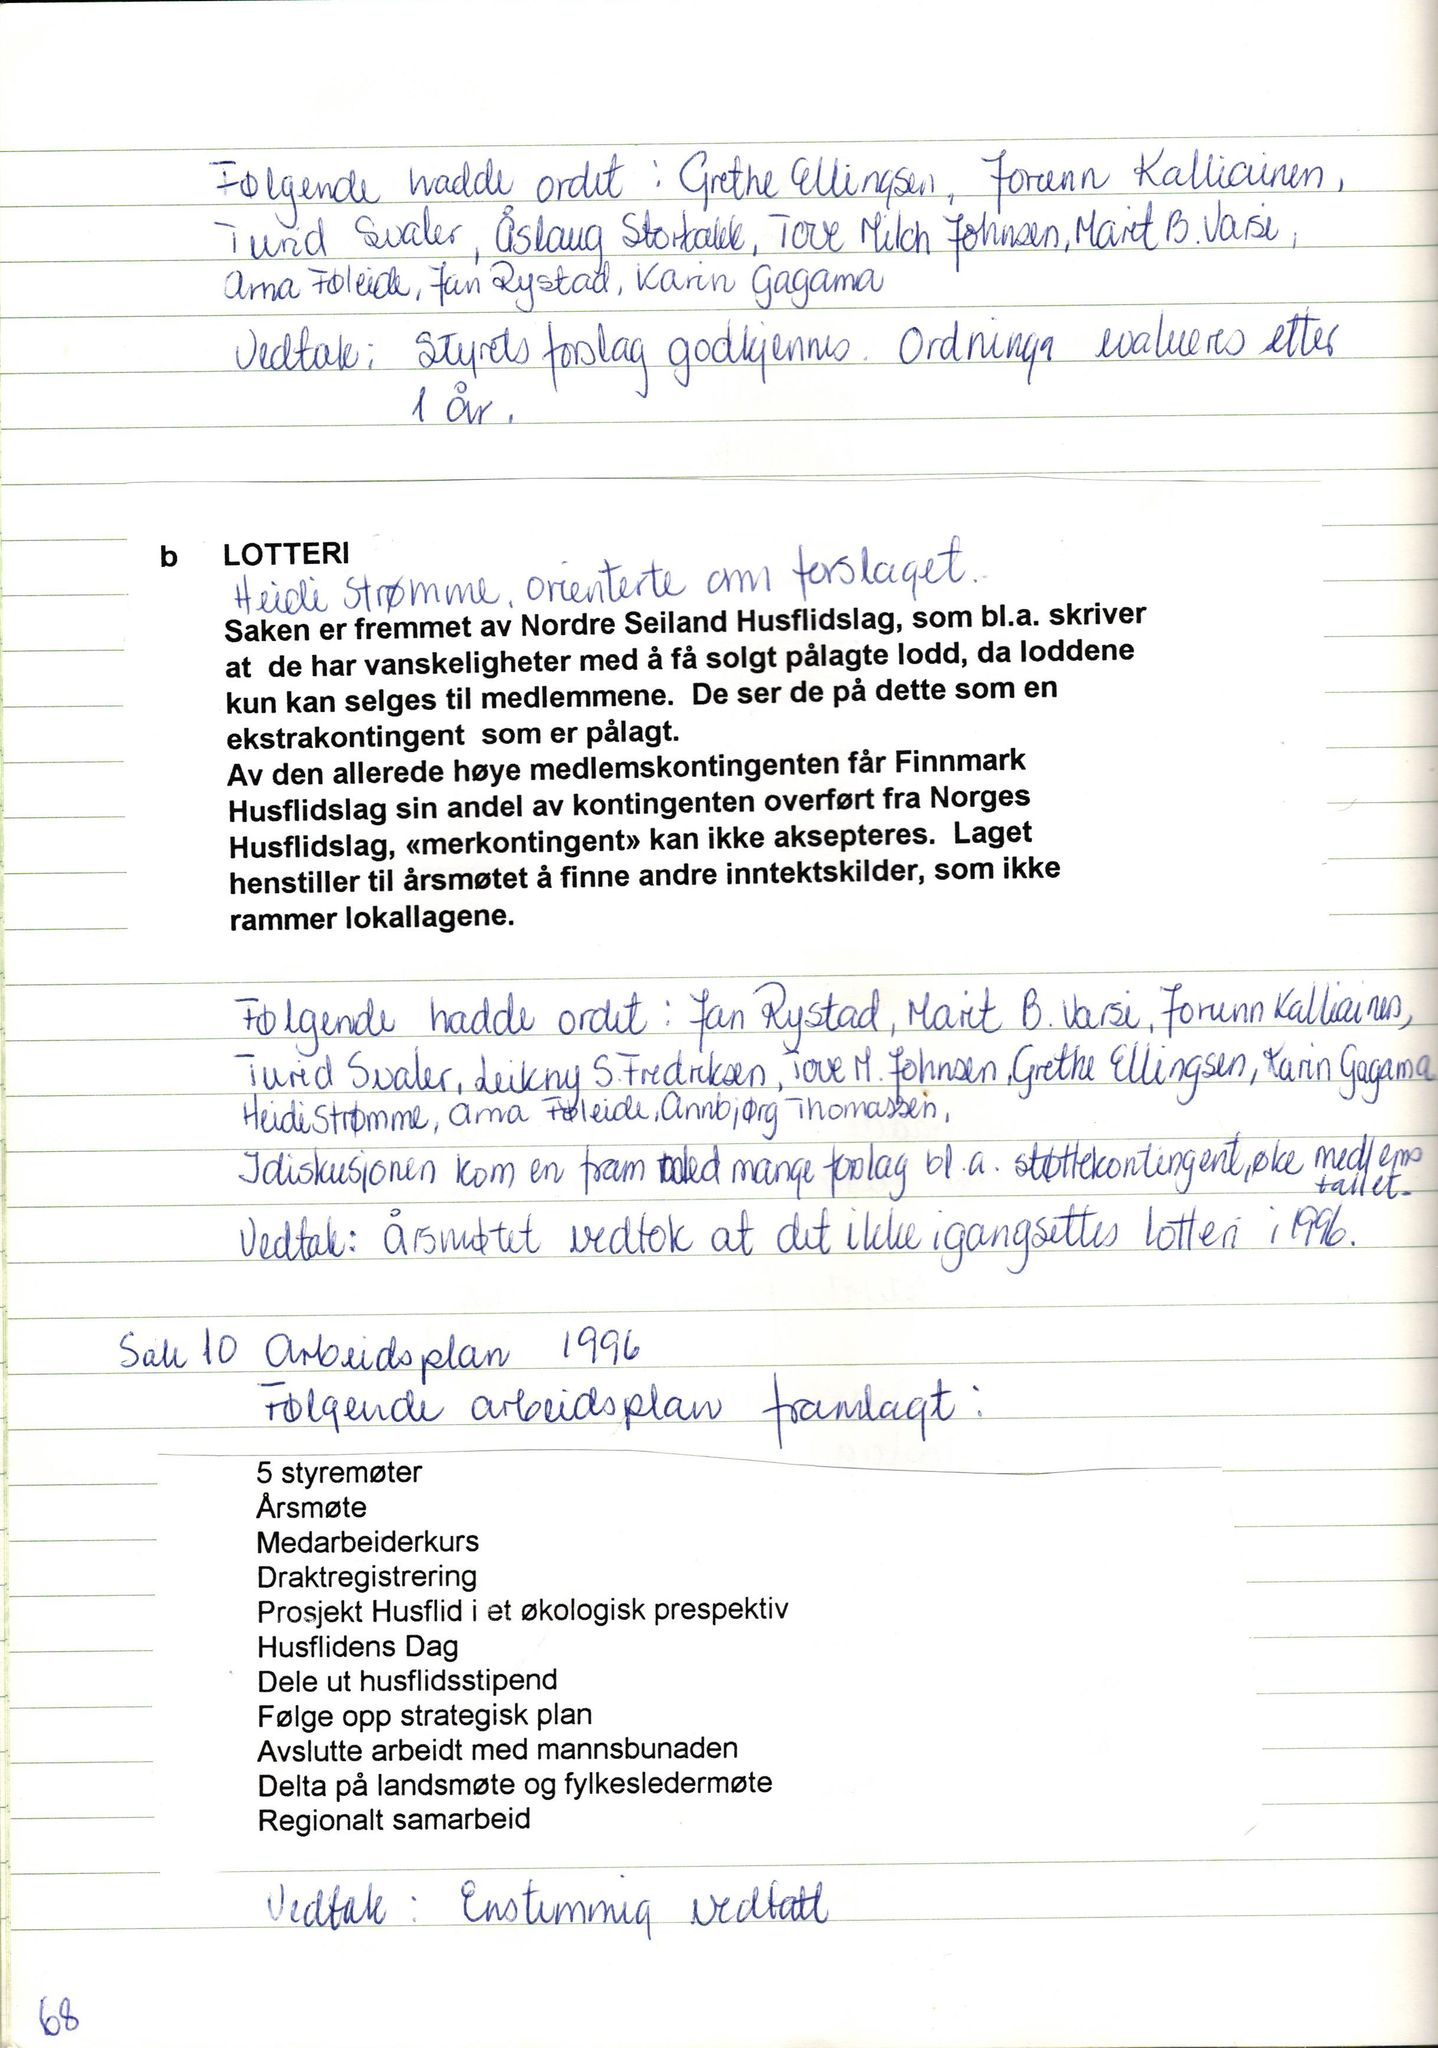 Følgende hadde ordet: Grethe Ellingsen, Jorunn Kalliainen,
Turid Svaler, Åslaug Storbakk, Tove Milch Johnsen, Marit B. Varsi,
Arna Føleide, Jan Rystad, Karin Gagama
Vedtak: Styrets forslag godkjennes. Ordninga evalueres etter
1 år.
b LOTTERI
Heidi Strømme, orienterte om forslaget.
Saken er fremmet av Nordre Seiland Husflidslag, som bl.a. skriver
at de har vanskeligheter med å få solgt pålagte lodd, da loddene
kun kan selges til medlemmene. De ser de på dette som en
ekstrakontingent som er pålagt.
Av den allerede høye medlemskontingenten får Finnmark
Husflidslag sin andel av kontingenten overført fra Norges
Husflidslag, «merkontingent» kan ikke aksepteres. Laget
henstiller til årsmøtet å finne andre inntektskilder, som ikke
rammer lokallagene.
Følgende hadde ordet: Jan Rystad, Marit B. Varsi, Jorunn Kalliainen,
Turid Svaler, Leikny S. Fredriksen, Tove M. Johnsen, Grethe Ellingsen, Karin Gagama
Heidi Strømme, Arna Føleide, Annbjørg Thomassen,
I diskusjonen kom en fram med mange forslag bl.a. støttekontingent, øke medlems
tallet.
Vedtak: Årsmøtet vedtok at det ikke igangsettes lotteri i 1996.
Sak 10 Arbeidsplan 1996
Følgende arbeidsplan framlagt:
5 styremøter
Årsmøte
Medarbeiderkurs
Draktregistrering
Prosjekt Husflid i et økologisk prespektiv
Husflidens Dag
Dele ut husflidsstipend
Følge opp strategisk plan
Avslutte arbeidt med mannsbunaden
Delta på landsmøte og fylkesledermøte
Regionalt samarbeid
Vedtak: Enstimmig vedtatt
68